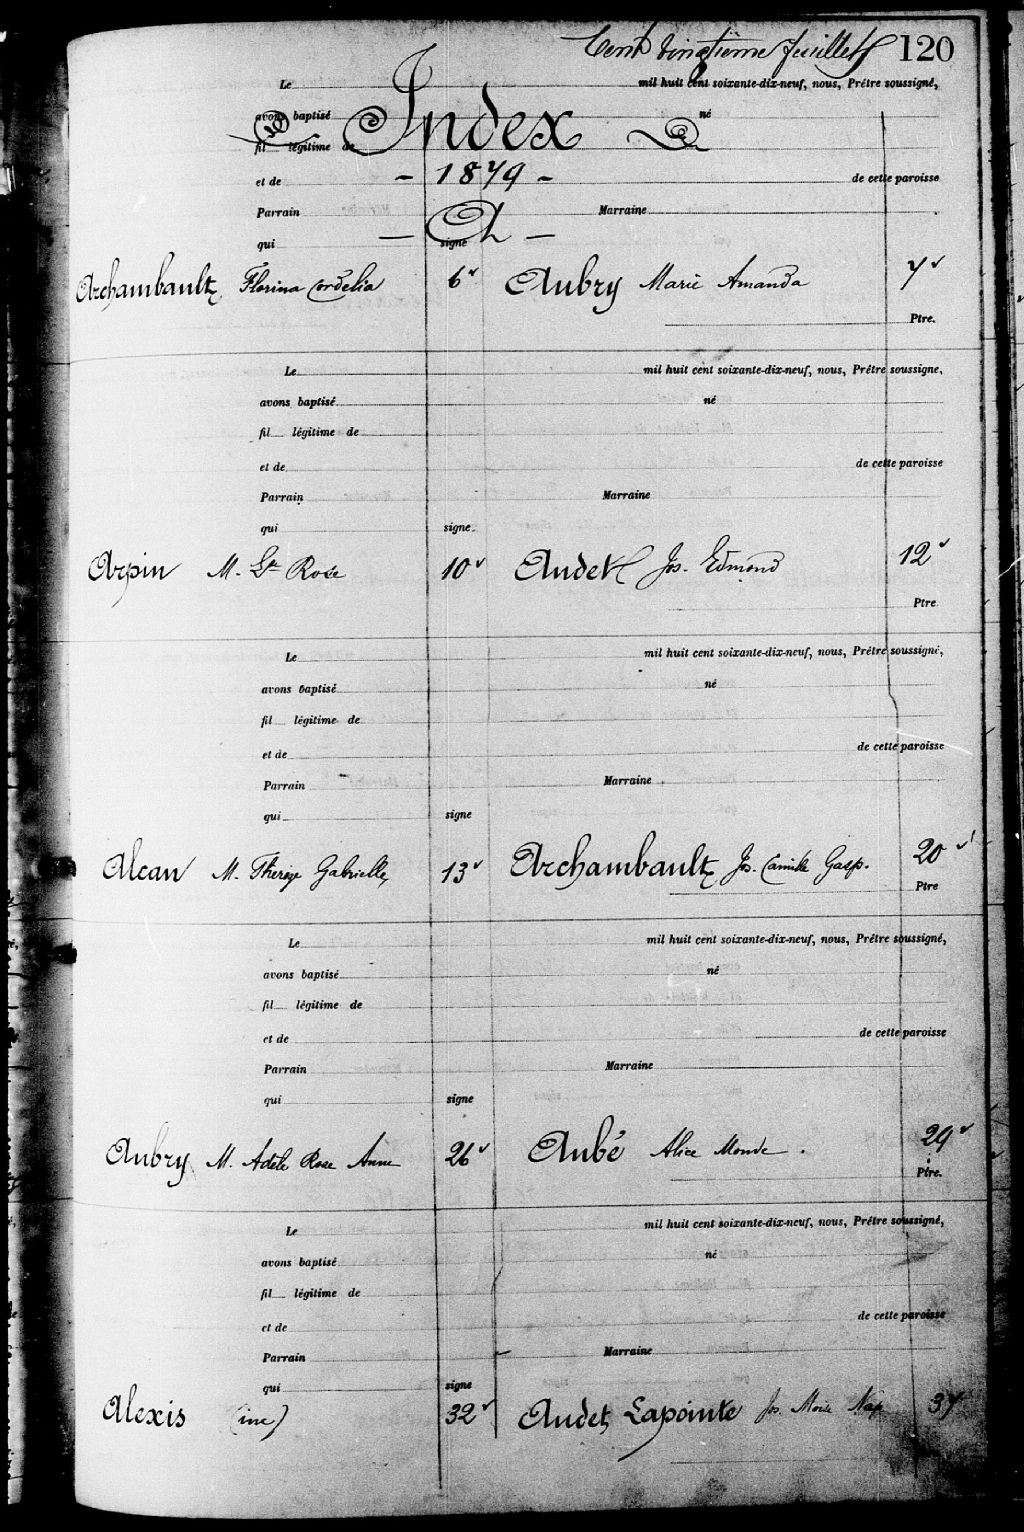 Cent vingtième feuillet 120
Le mil huit cent soixante-dix-neuf, nous, Prêtre soussigné,
avons baptisé né
Index
fil légitime de
- 1879 -
et de de cette paroisse
Parrain Marraine
- A -
qui signe
Archambault Florina Cordelia 6v Aubry Marie Amanda 7v
Ptre.
Le mil huit cent soixante-dix-neuf, nous, Prêtre soussigné,
avons baptisé né
fil légitime de
et de de cette paroisse
Parrain Marraine
qui signe
Arpin M. Ste Rose 10v Audet Jos. Edmond 12v
Ptre
Le mil huit cent soixante-dix-neuf, nous, Prêtre soussigné,
avons baptisé né
fil légitime de
et de de cette paroisse
Parrain Marraine
qui signe
Alcan M. Gabrielle 13v Archambault Js. Camille Gasp. 20v
Ptre
Le mil huit cent soixante-dix-neuf, nous, Prêtre soussigné,
avons baptisé né
fil légitime de
et de de cette paroisse
Parrain Marraine
qui signe
Aubry M. Adèle Rose Anne 26v Aubé Alice 29v
Ptre.
Le mil huit cent soixante-dix-neuf, nous, Prêtre soussigné,
avons baptisé né
fil légitime de
et de de cette paroisse
Parrain Marraine
qui signe
Alexis (inc) 32v Audet Lapointe Jos. Marie Nap 37